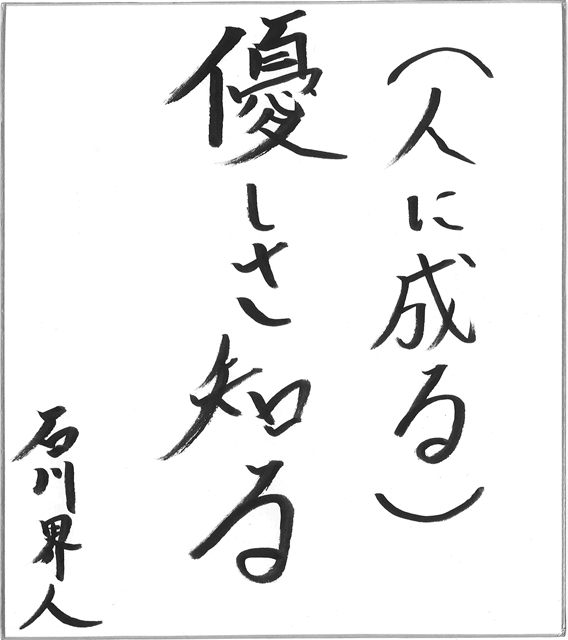 （人に成る）
優しさ知る
石川界人